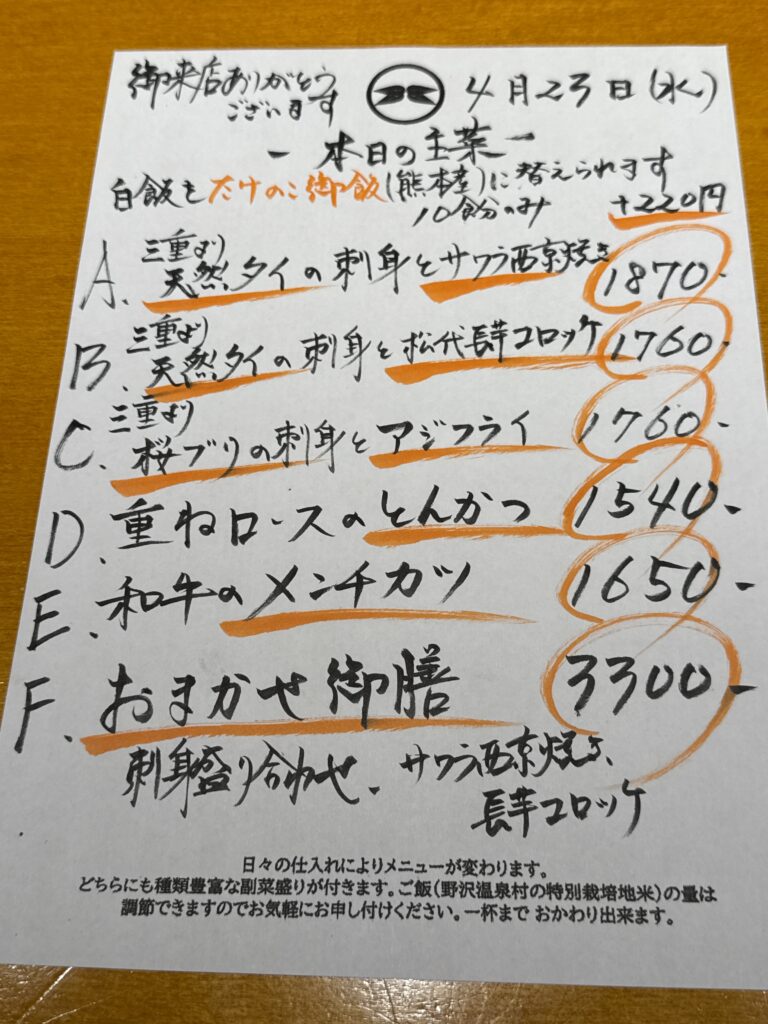 御来店ありがとう
ございます
4月23日(水)
- 本日の主菜 -
白飯をたけのこ御飯(熊本産)に替えられます
10食分のみ +220円
A. 三重より
天然タイの刺身とサワラ西京焼き 1870-
B. 三重より
天然タイの刺身と松代長芋コロッケ 1760-
C. 三重より
桜ブリの刺身とアジフライ 1760-
D. 重ねロースのとんかつ 1540-
E. 和牛のメンチカツ 1650-
F. おまかせ御膳 3300-
刺身盛り合わせ、サワラ西京焼き、
長芋コロッケ
日々の仕入れによりメニューが変わります。
どちらにも種類豊富な副菜盛りが付きます。ご飯(野沢温泉村の特別栽培地米)の量は
調節できますのでお気軽にお申し付けください。一杯まで おかわり出来ます。